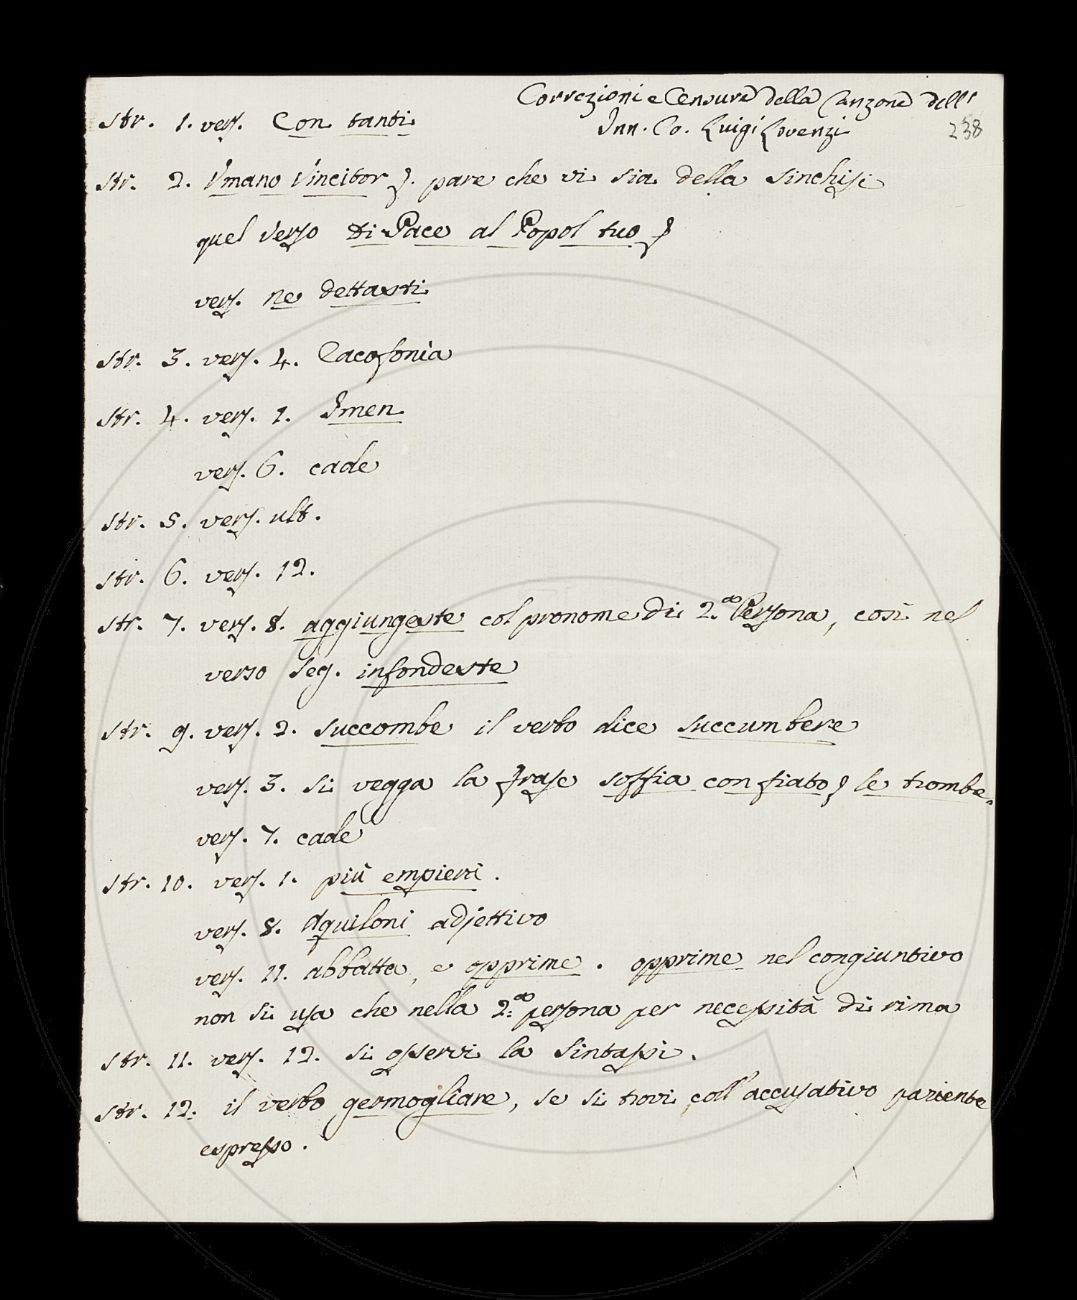 Correzioni e Censure della Canzone dell'
Inn. Co. Luigi Lorenzi
238
Str. 1. vers. Con tanti
Str. 2. Umano Vincitor}. pare che vi sia della sinchisi
quel Verso Di Pace al Popol tuo}
vers. ne dettasti
Str. 3. vers. 4. Cacofonia
Str. 4. vers. 1. Imen
vers. 6. cade
Str. 5. vers. ult.
Str. 6. vers. 12.
Str. 7. vers. 8. aggiungeste col pronome di 2.a Persona, così nel
verso seg. infondeste
Str. 9. vers. 2. succombe il verbo dice succumbere
vers. 3. si vegga la frase soffia con fiato} le trombe.
vers. 7. cade
Str. 10. vers. 1. più empiersi.
vers. 8. Aquiloni adjettivo
vers. 11. abbatta, e opprime. opprime nel congiuntivo
non si usa che nella 2.a persona per necessità di rima
Str. 11. vers. 12. si osservi la Sintassi.
Str. 12. il verbo germogliare, se si trovi coll' accusativo paziente
espresso.